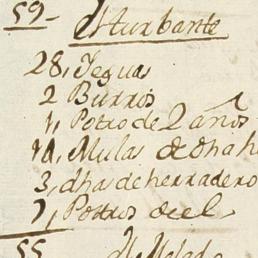 59- Sturbante
28, Yeguas
2 Burros
1, Potro de 2 años
Mulas de dha h
3, dhas de herradero
7, Potros del
55